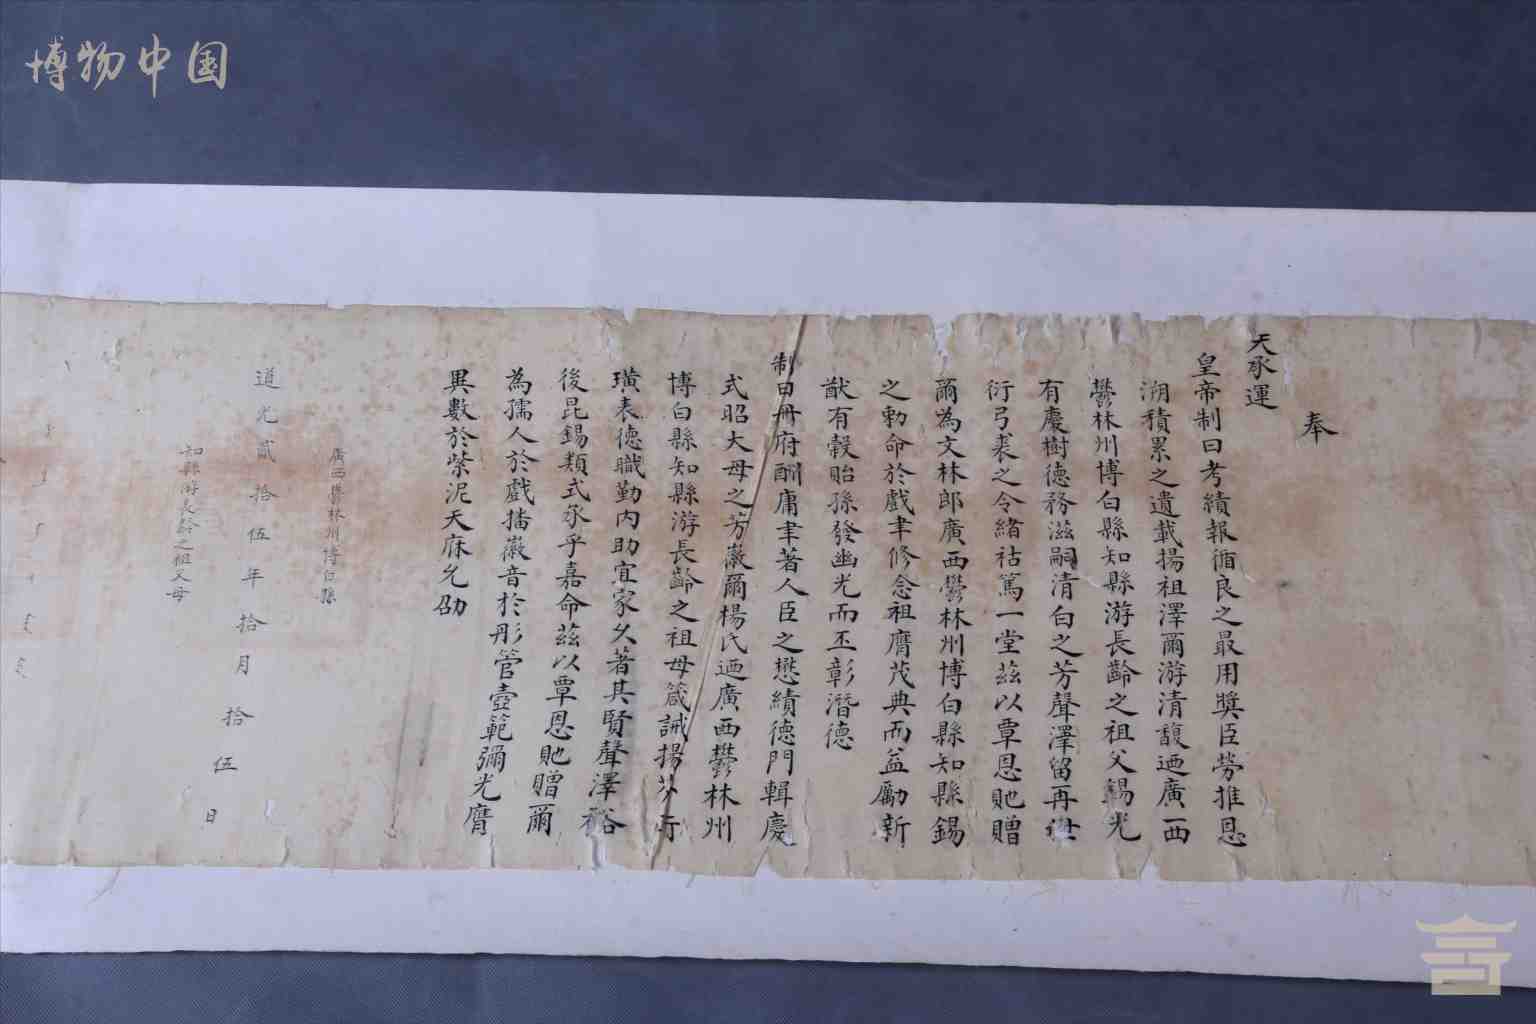 博物中国
奉
天承運
皇帝制曰考績報循良之最用獎臣勞推恩
溯積累之遺載揚祖澤爾游清馥迺廣西
鬱林州博白縣知縣游長齡之祖父錫光
有慶樹德務滋嗣清白之芳聲澤留再世
衍弓裘之令緒祜篤一堂茲以覃恩貤贈
爾為文林郎廣西鬱林州博白縣知縣錫
之勅命於戲聿修念祖膺茂典而益勵新
猷有穀貽孫發幽光而丕彰潛德
制曰冊府酬庸聿著人臣之懋績德門輯慶
式昭大母之芳徽爾楊氏迺廣西鬱林州
博白縣知縣游長齡之祖母箴誡揚芬珩
璜表德職勤內助宜家久著其賢聲澤裕
後昆錫類式承乎嘉命茲以覃恩貤贈爾
為孺人於戲播徽音於彤管壺範彌光膺
異數於紫泥天庥允劭
廣西鬱林州博白縣
道光貳拾伍年拾月拾伍日
知縣游長齡之祖父母